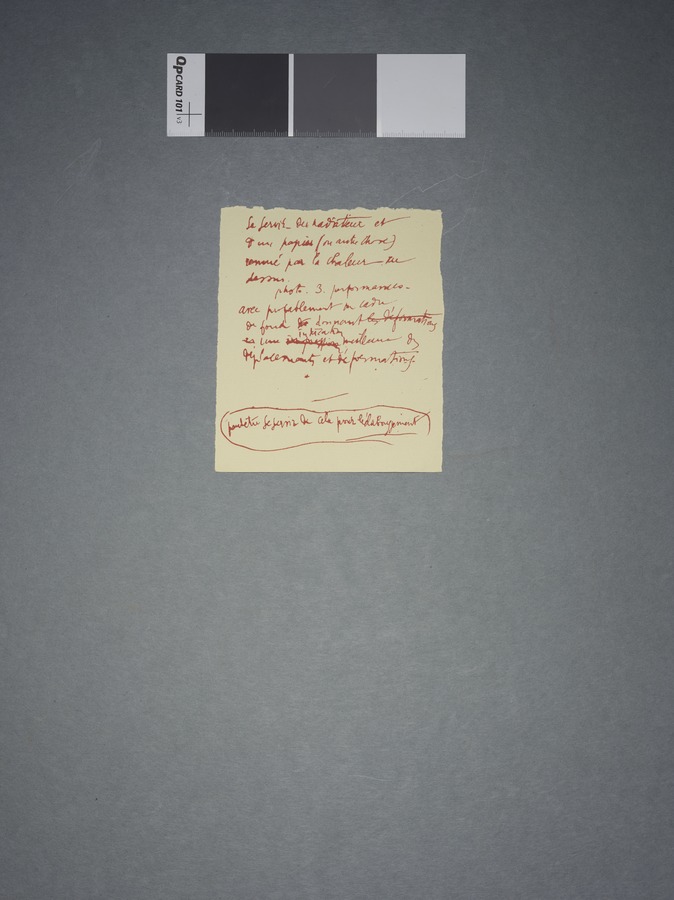 QpCARD 101 v3
Se servir du radiateur et
d'un papier (ou autre chose)
remué par la chaleur au
dessus.
photo. 3. performances.
avec préfablement un cadre
de fond donnant les déformations
une indication meilleure des
déplacements et déformations.
peut être se servir de cela pour l'élargissement